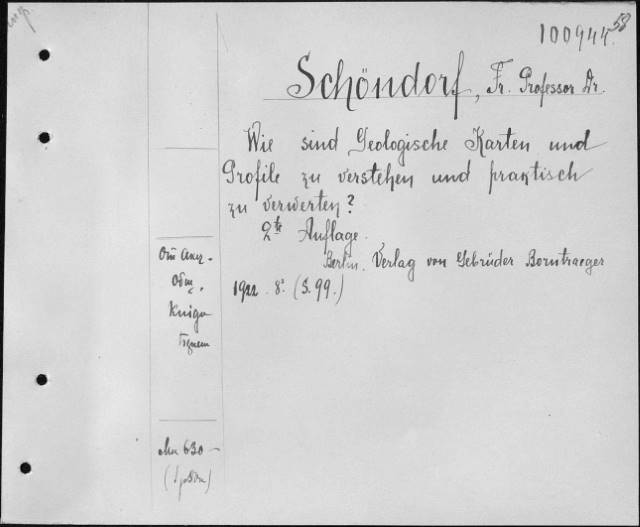 100944 58
Schöndorf, Fr. Professor Dr.
Wie sind Geologische Karten und
Profile zu verstehen und praktisch
zu verwerten?
2te Auflage.
Berlin. Verlag von Gebrüder Borntraeger
1922. 8°. (S. 99.)
Kniga
630-